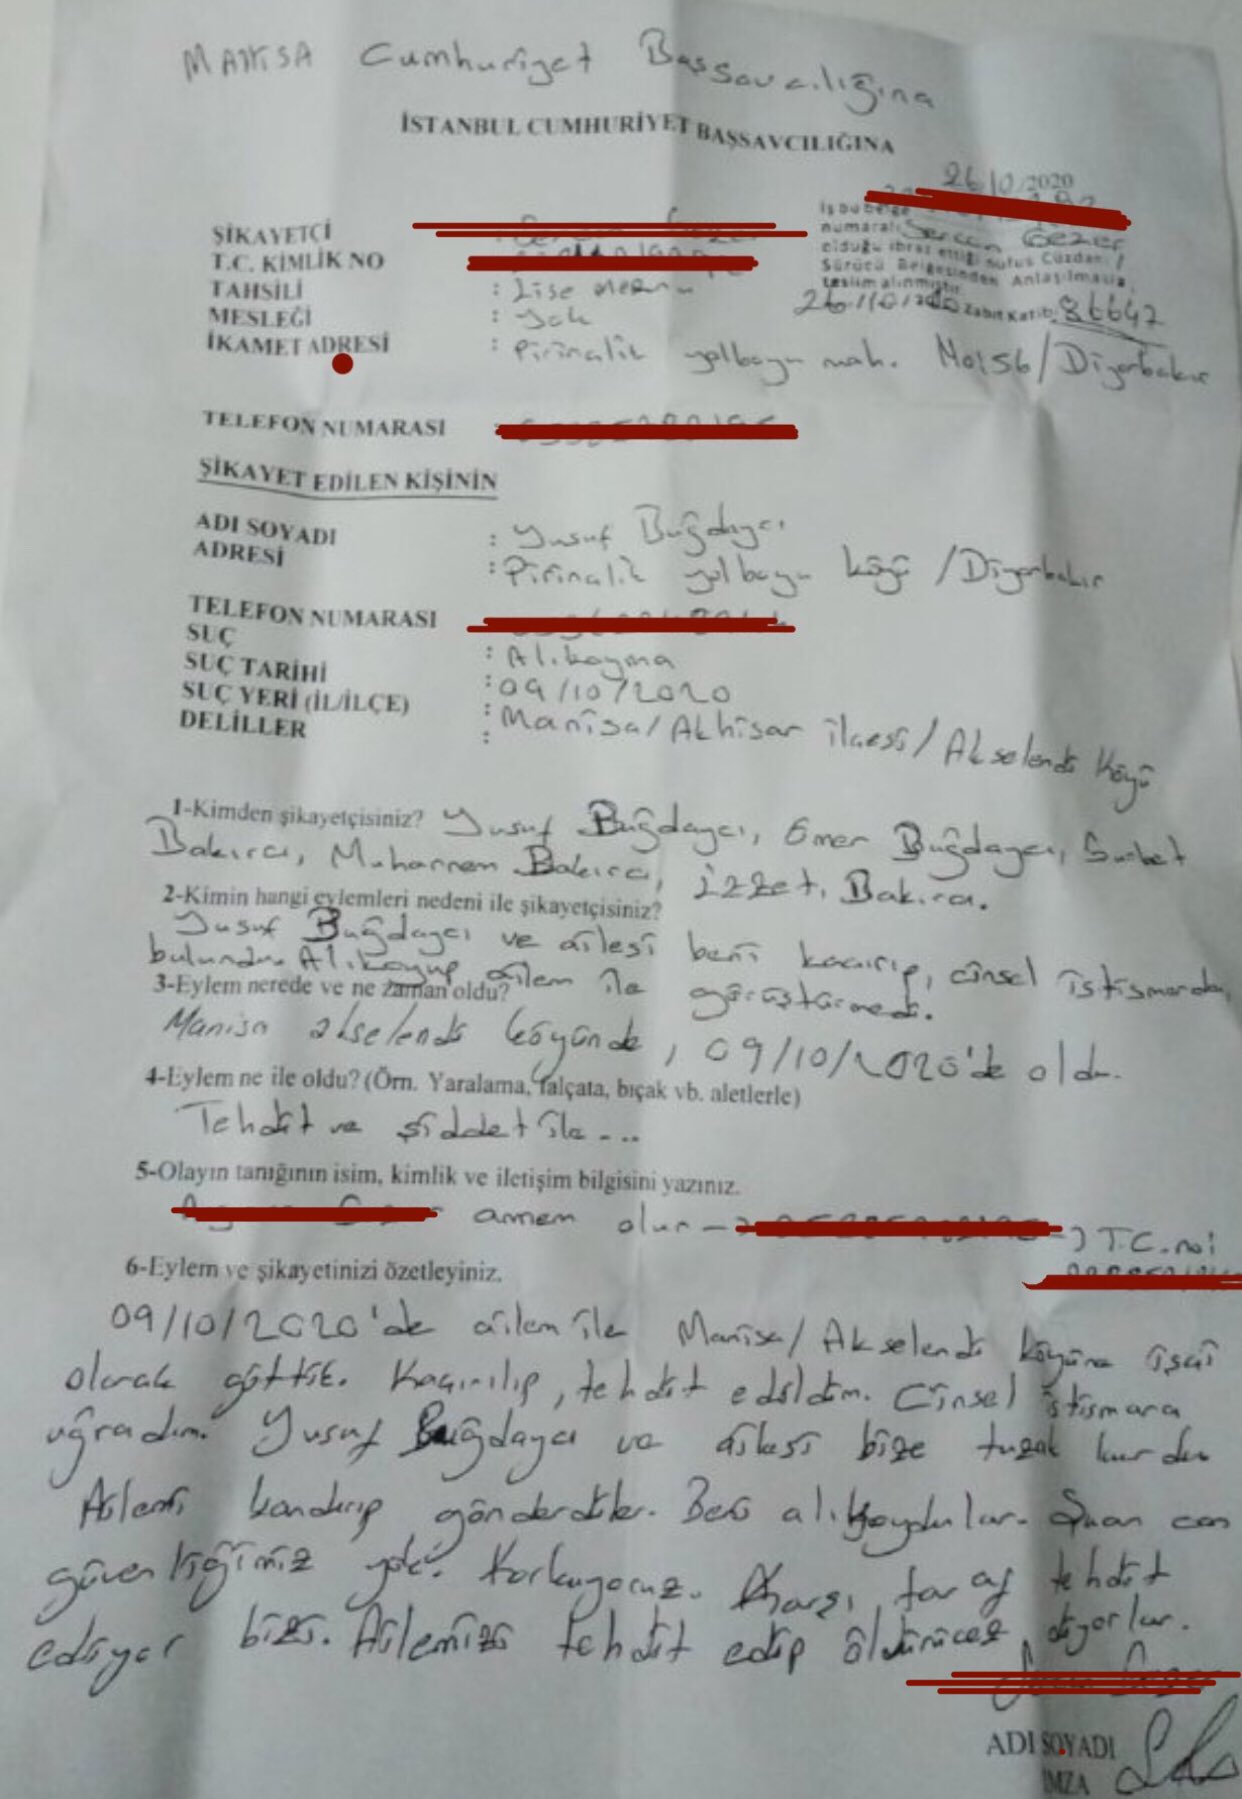 MANİSA Cumhuriyet Başsavcılığına
İSTANBUL CUMHURİYET BAŞSAVCILIĞINA
26/10/2020
ŞİKAYETÇİ
T.C. KİMLİK NO
TAHSİLİ : Lise mezunu
MESLEĞİ : Yok
İKAMET ADRESİ : Pirinçlik yolboyu mah. No:56/Diyarbakır
İşbu belge
numaralı
olduğu ibraz ettiği Nufus Cüzdanı /
Sürücü Belgesinden Anlaşılmakla
teslim alınmıştır.
26/10/2020 Zabıt Katibi 86647
TELEFON NUMARASI
ŞİKAYET EDİLEN KİŞİNİN
ADI SOYADI : Yusuf Buğdaycı
ADRESİ : Pirinçlik yolboyu köyü /Diyarbakır
TELEFON NUMARASI
SUÇ : Alıkoyma
SUÇ TARİHİ : 09/10/2020
SUÇ YERİ (İL/İLÇE) : Manisa/Akhisar ilçesi/Akselendi Köyü
DELİLLER :
1-Kimden şikayetçisiniz? Yusuf Buğdaycı, Ömer Buğdaycı,
Bakırcı, Muharrem Bakırcı, İzzet. Bakırcı.
2-Kimin hangi eylemleri nedeni ile şikayetçisiniz?
Yusuf Buğdaycı ve ailesi beni kaçırıp, cinsel istismarda
bulundu. Alıkoyup, ailem ile görüştürmedi.
3-Eylem nerede ve ne zaman oldu?
Manisa akselendi köyünde, 09/10/2020'de oldu.
4-Eylem ne ile oldu? (Örn. Yaralama, falçata, bıçak vb. aletlerle)
Tehdit ve şiddet ile...
5-Olayın tanığının isim, kimlik ve iletişim bilgisini yazınız.
annem olur → → T.C. no:
6-Eylem ve şikayetinizi özetleyiniz.
09/10/2020'de ailem ile Manisa/Akselendi köyüne işçi
olarak gittik. Kaçırılıp, tehdit edildim. Cinsel istismara
uğradım. Yusuf Buğdaycı ve ailesi bize tuzak kurdu
Ailemi kandırıp gönderdiler. Beni alıkoydular. Şuan can
güvenliğimiz yok. Korkuyoruz. Karşı taraf tehdit
ediyor bizi. Ailemizi tehdit edip öldürücez diyorlar.
ADI SOYADI
İMZA